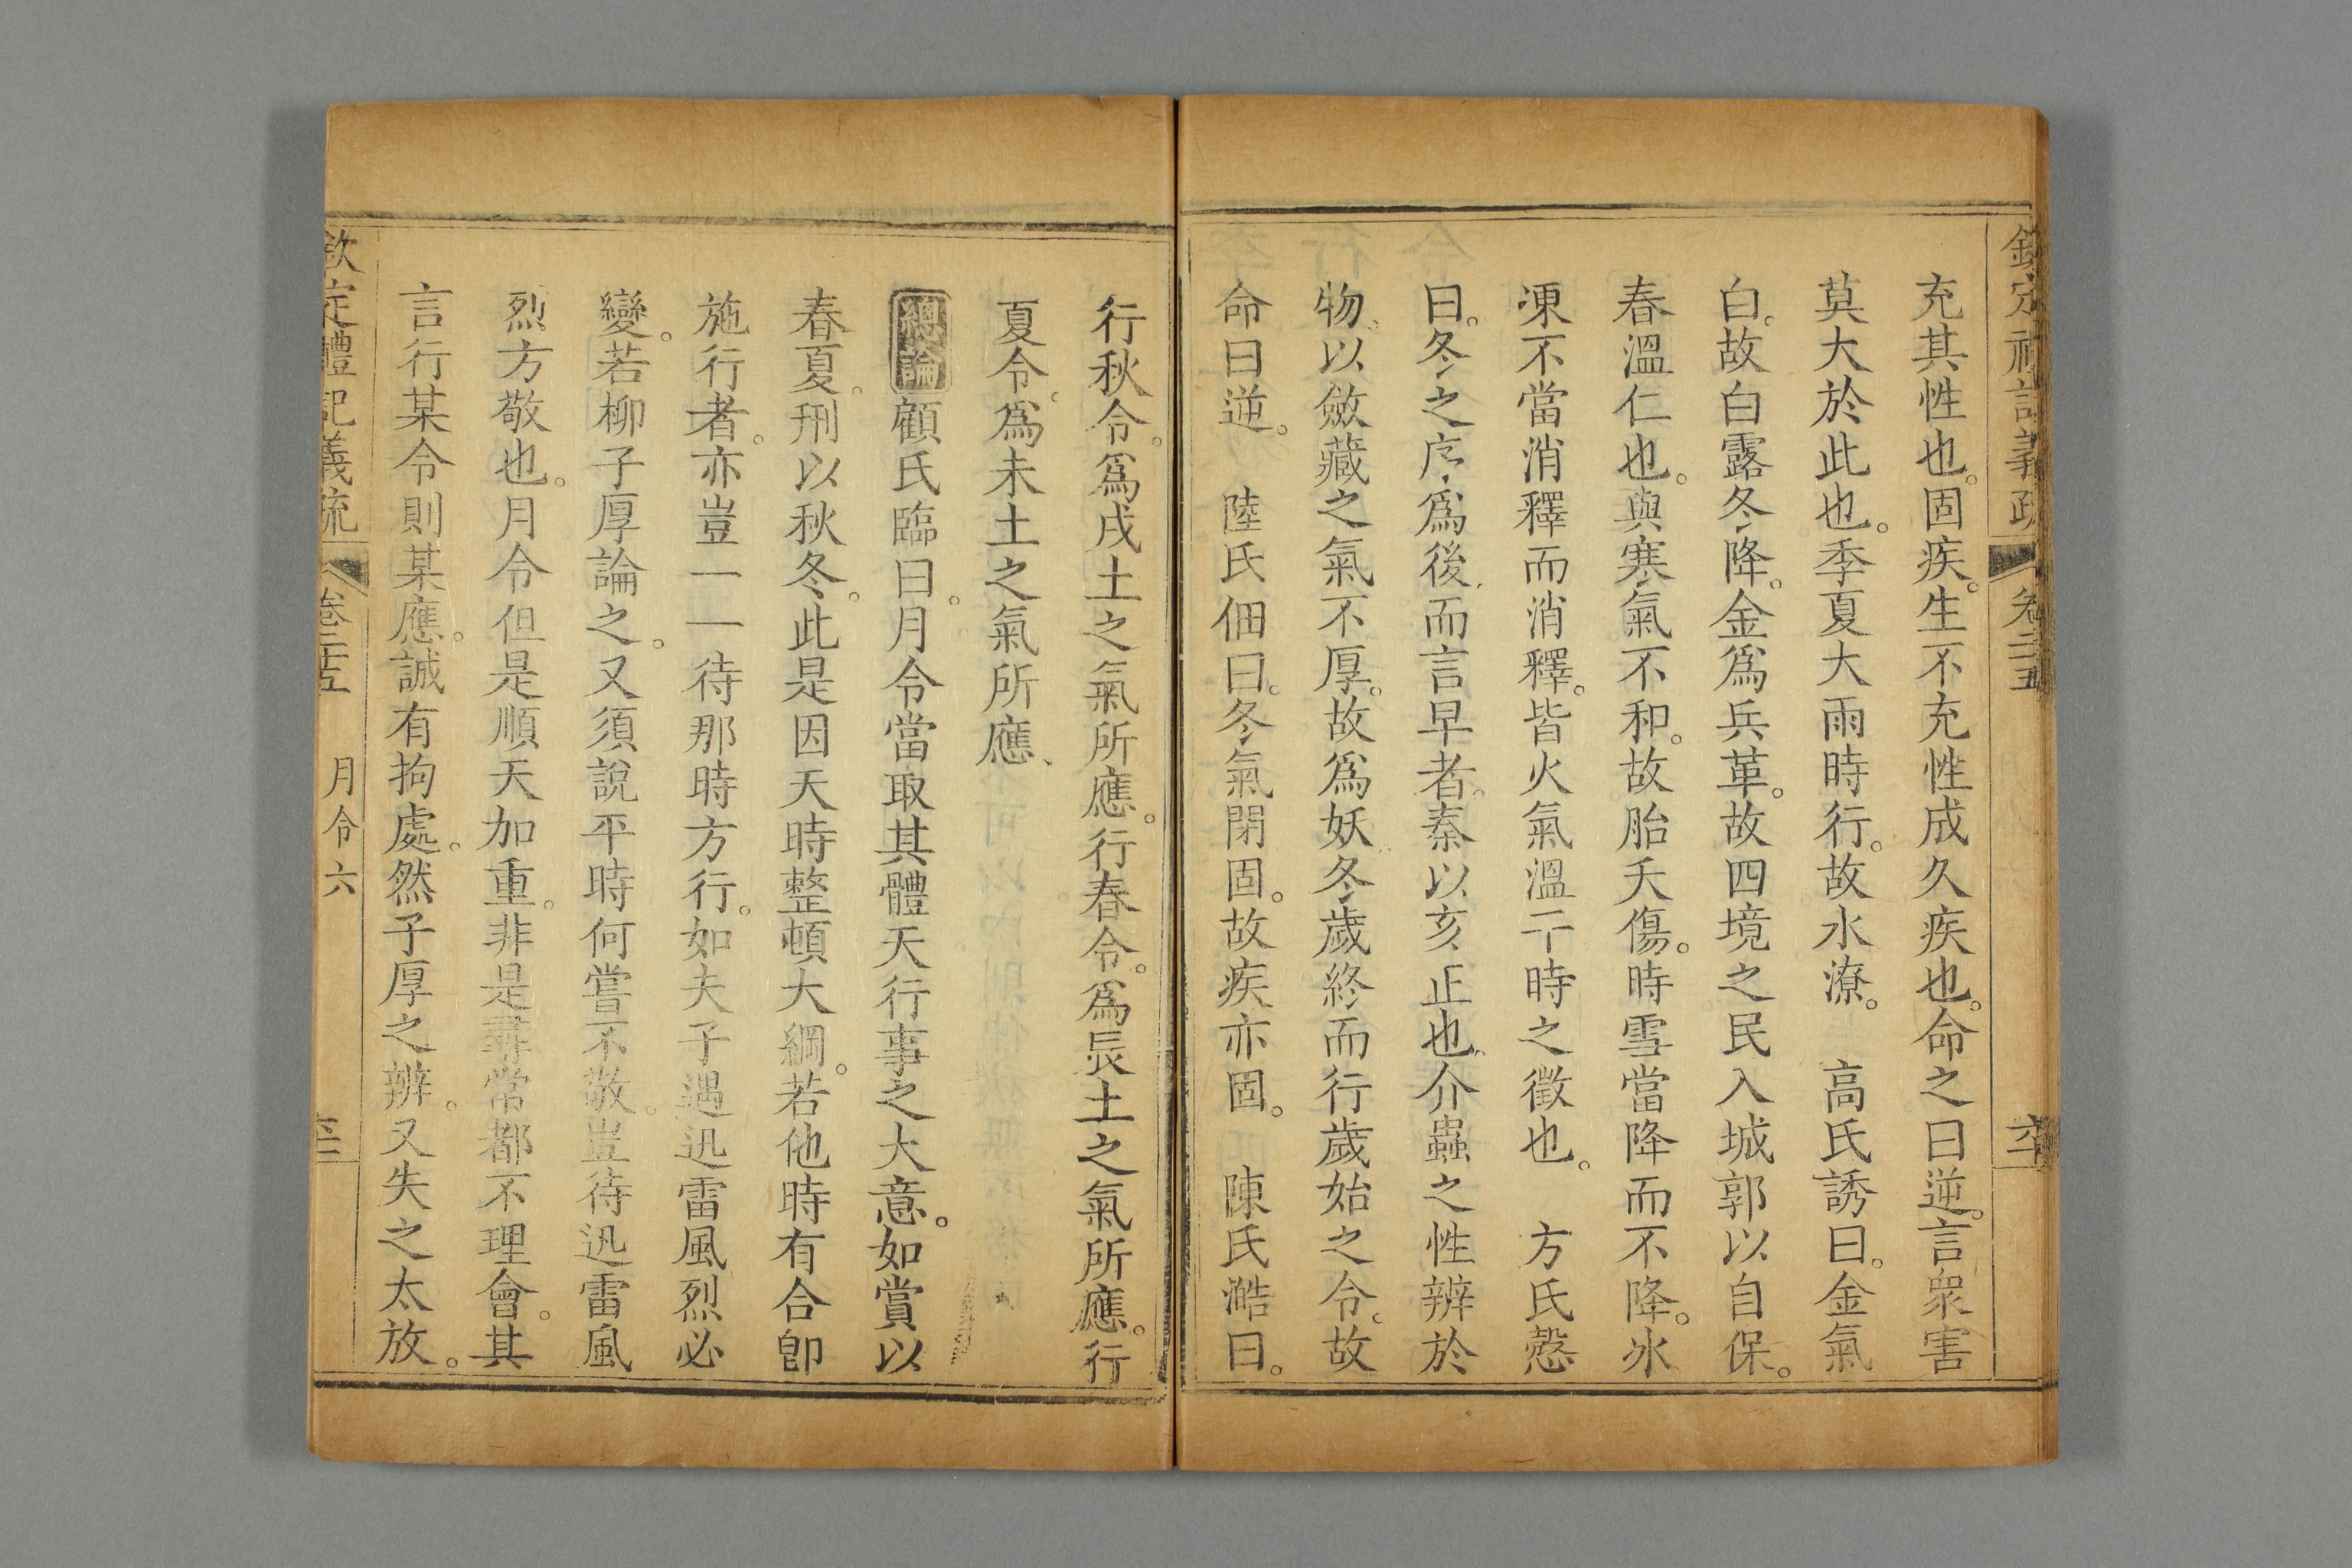 欽定禮記義疏 卷二十五 六十
充其性也。固疾。生不充性成久疾也。命之曰逆。言衆害
莫大於此也。季夏大雨時行。故水潦。 高氏誘曰。金氣
白。故白露冬降。金爲兵革。故四境之民入城郭以自保。
春溫仁也。與寒氣不和。故胎夭傷。時雪當降而不降。冰
凍不當消釋而消釋。皆火氣溫干時之徵也。 方氏慤
曰。冬之序爲後而言早者。秦以亥正也。介蟲之性辨於
物。以斂藏之氣不厚。故爲妖。冬歲終而行歲始之令。故
命曰逆。 陸氏佃曰。冬氣閉固。故疾亦固。 陳氏澔曰。
行秋令。爲戌土之氣所應。行春令。爲辰土之氣所應。行
夏令。爲未土之氣所應、
總論 顧氏臨曰。月令當取其體天行事之大意。如賞以
春夏。刑以秋冬。此是因天時整頓大綱。若他時有合卽
施行者。亦豈一一待那時方行。如夫子遇迅雷風烈必
變。若柳子厚論之。又須說平時何嘗不敬。豈待迅雷風
烈方敬也。月令但是順天加重。非是尋常都不理會。其
言行某令則某應。誠有拘處。然子厚之辨。又失之太放。
欽定禮記義疏 卷二十五 月令六